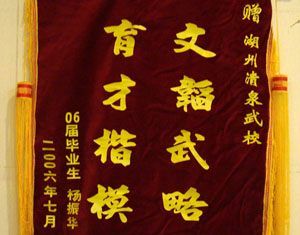 赠 湖州清泉武校
文韬武略
育才楷模
06届毕业生 杨振华
二00六年七月